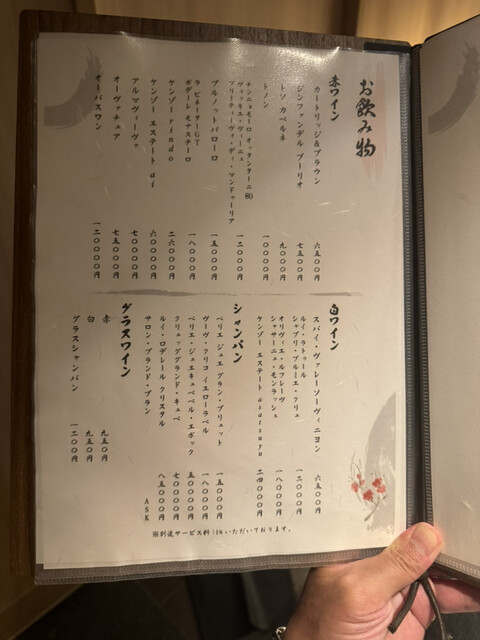 お飲み物
赤ワイン
カートリッジ&ブラウン 六五〇〇円
ジンファンデル ブーリオ 七五〇〇円
トソ カベルネ 九〇〇〇円
トノン 一〇〇〇〇円
チンニョモーロ・オッタンターニ 80
ヴェッキエ・ヴィーニュ
プリーティーヴォ・ディ・マンドゥーリア 一二〇〇〇円
ブルノットバローロ 一五〇〇〇円
ラ ピネーターGT
ボデーレ モナステーロ 一八〇〇〇円
ケンゾー rindo 二六〇〇〇円
ケンゾー エステート ai 六〇〇〇〇円
アルマヴィーヴァ 七〇〇〇〇円
オーヴァチュア 七五〇〇〇円
オーパスワン 一二〇〇〇〇円
白ワイン
スパイ・ヴァレーソーヴィニヨン 六五〇〇円
ルイ・ラトゥール
シャブリ・プルミエ・クリュ 一二〇〇〇円
オリヴィエ・ルフレーヴ
シャサーニュ・モンラッシェ 一八〇〇〇円
ケンゾー エステート asatsuyu 二四〇〇〇円
シャンパン
ペリエ ジュエ グラン・ブリュット 一五〇〇〇円
ヴーヴ・クリコ イエローラベル 一八〇〇〇円
ペリエ・ジュエキュベベル・エポック 五〇〇〇〇円
クリュッググランド・キュベ 七〇〇〇〇円
ルイ・ロデレール クリスタル 八五〇〇〇円
サロン・ブランド・ブラン ASK
グラスワイン
赤 九五〇円
白 九五〇円
グラスシャンパン 一二〇〇円
※別途サービス料10%いただいております。